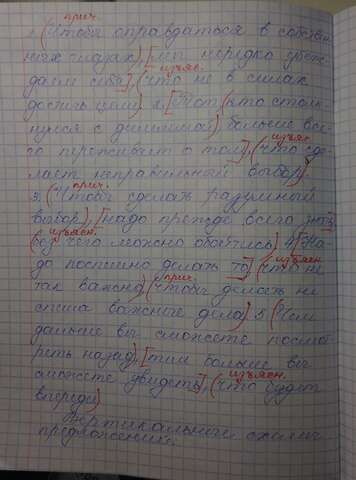 прич.
1. (Чтобы оправдаться в собствен
ных глазах), [мы нередко убеж
даем себя], изъяс.
(что не в силах
достичь цели) 2. [Тот (кто столк
нулся с дилеммой) больше все
го переживает о том], изъяс. (что сде
лает неправильный выбор)
3. прич. (Чтобы сделать разумный
выбор), [надо прежде всего знать]
изъясн. (без чего можно обойтись) 4. [На
до поспешно делать то] изъясн. (что не
так важно) прич. (чтобы делать не
спеша важные дела) 5. (Чем
дальше вы сможете посмот
реть назад), [тем больше вы
сможете увидеть], изъясн. (что будет
впереди)
Вертикальные схемы
предложений.